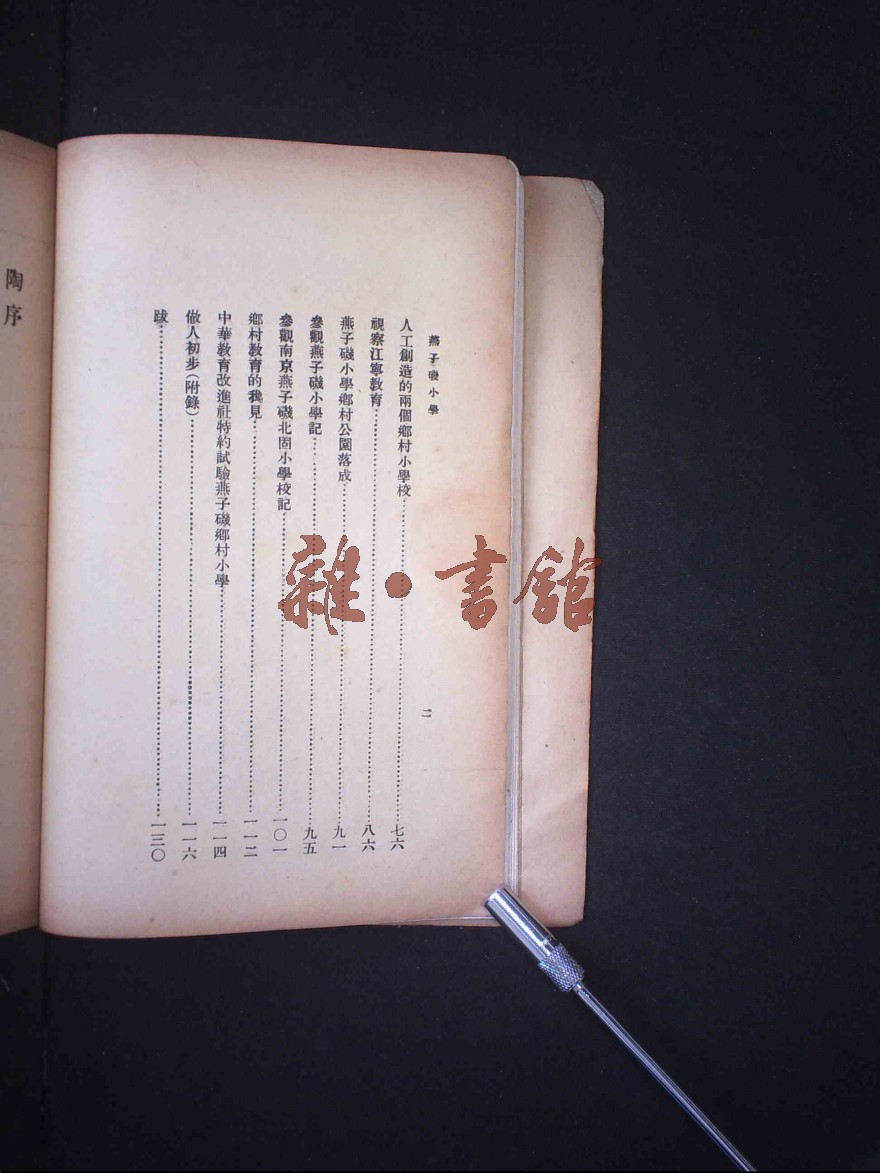 燕子磯小學
二
人工創造的兩個鄉村小學校……七六
視察江寧教育……八六
燕子磯小學鄉村公園落成……九一
參觀燕子磯小學記……九五
參觀南京燕子磯北固小學校記……一〇一
鄉村教育的我見……一一二
中華教育改進社特約試驗燕子磯鄉村小學……一一四
做人初步(附錄)……一一六
跋……一三〇
陶序
雜·書館